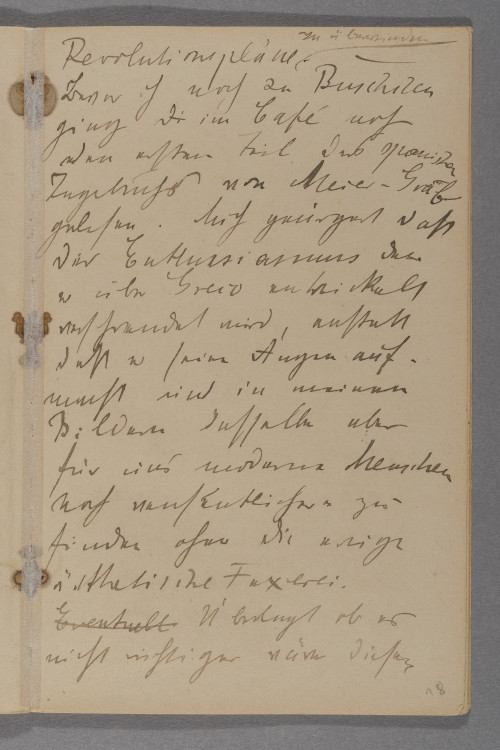 zu überwinden
Revolutionspläne.
Bevor ich noch zu Buschiken
ging die im Café noch
den ersten Teil des spanischen
Tagebuchs von Meier-Gräfe
gelesen. Mich geärgert daß
der Enthusiasmus den
er über Greco entwickelt
verschwendet wird, anstatt
daß er seine Augen auf-
macht und in meinen
Bildern dasselbe aber
für uns moderne Menschen
noch wesentlichere zu
finden ohne die ewige
ästhetische Faxerei.
Eventuell Überlegt ob es
nicht richtiger wäre diesen